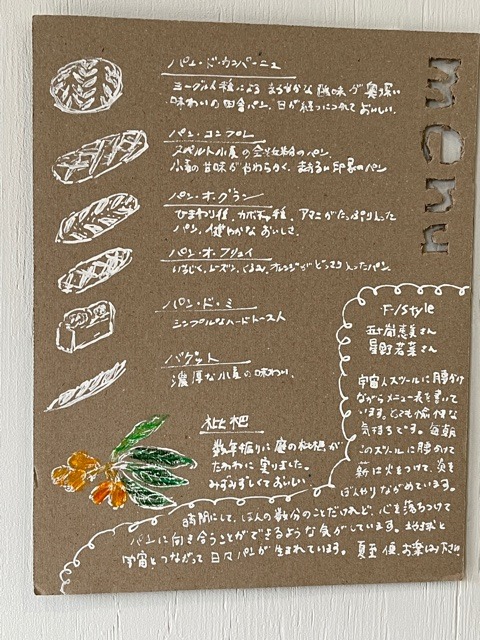 menu
パン・ド・カンパーニュ
ヨーグルト種による まろやかな酸味が奥深い
味わいの田舎パン。日が経つにつれておいしい。
パン・コンプレ
スペルト小麦の全粒粉のパン。
小麦の甘味がやわらかく、まあるい印象のパン
パン・オ・グラン
ひまわり種、カボチャ種、アマニがたっぷり入った
パン。健やかなおいしさ。
パン・オ・フリュイ
いちじく、レーズン、くるみ、オレンジがどっさり入ったパン。
パン・ド・ミ
シンプルなハードトースト
バゲット
濃厚な小麦の味わい。
枇杷
数年振りに庭の枇杷が
たわわに実りました。
みずみずしくておいしい
F/style
五十嵐恵美さん
星野若菜さん
宇宙人スツールに腰かけ
ながらメニュー表を書いて
います。とても愉快な
気持ちです。毎朝
このスツールに腰かけて
薪に火をつけて、炎を
ぼんやりながめています。
時間にして、ほんの数分のことだけれど、心を落ちつけて
パンに向き合うことができるような気がしています。地球と
宇宙とつながって 日々パンが生まれています。 夏至 便、お楽しみ下さい